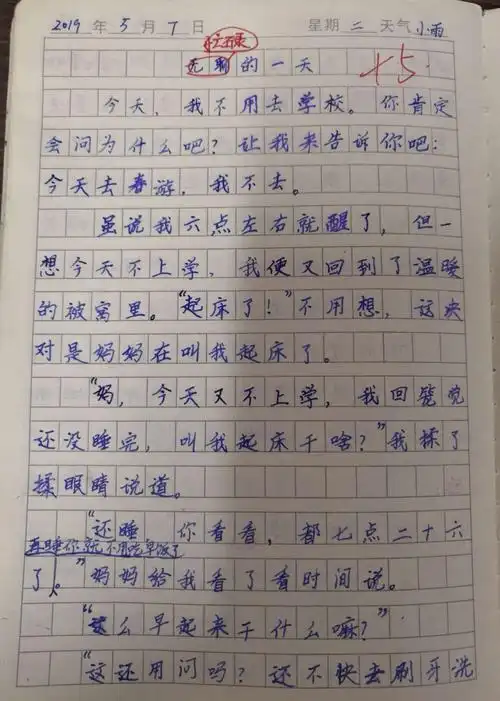 2019年5月7日 星期二 天气小雨
忙碌
无聊的一天 +5
今天，我不用去学校。你肯定
会问为什么吧？让我来告诉你吧：
今天去春游，我不去。
虽说我六点左右就醒了，但一
想今天不上学，我便又回到了温暖
的被窝里。“起床了！”不用想，这
对是妈妈在叫我起床了。
“妈，今天又不上学，我回
还没睡完，叫我起床干啥？”我揉了
揉眼睛说道。
“还睡，你看看，都七点二十六
再睡你就不用吃早饭了
了。”妈妈给我看了看时间说。
“这么早起来干什么嘛？”
“这还用问吗？还不快去刷牙洗